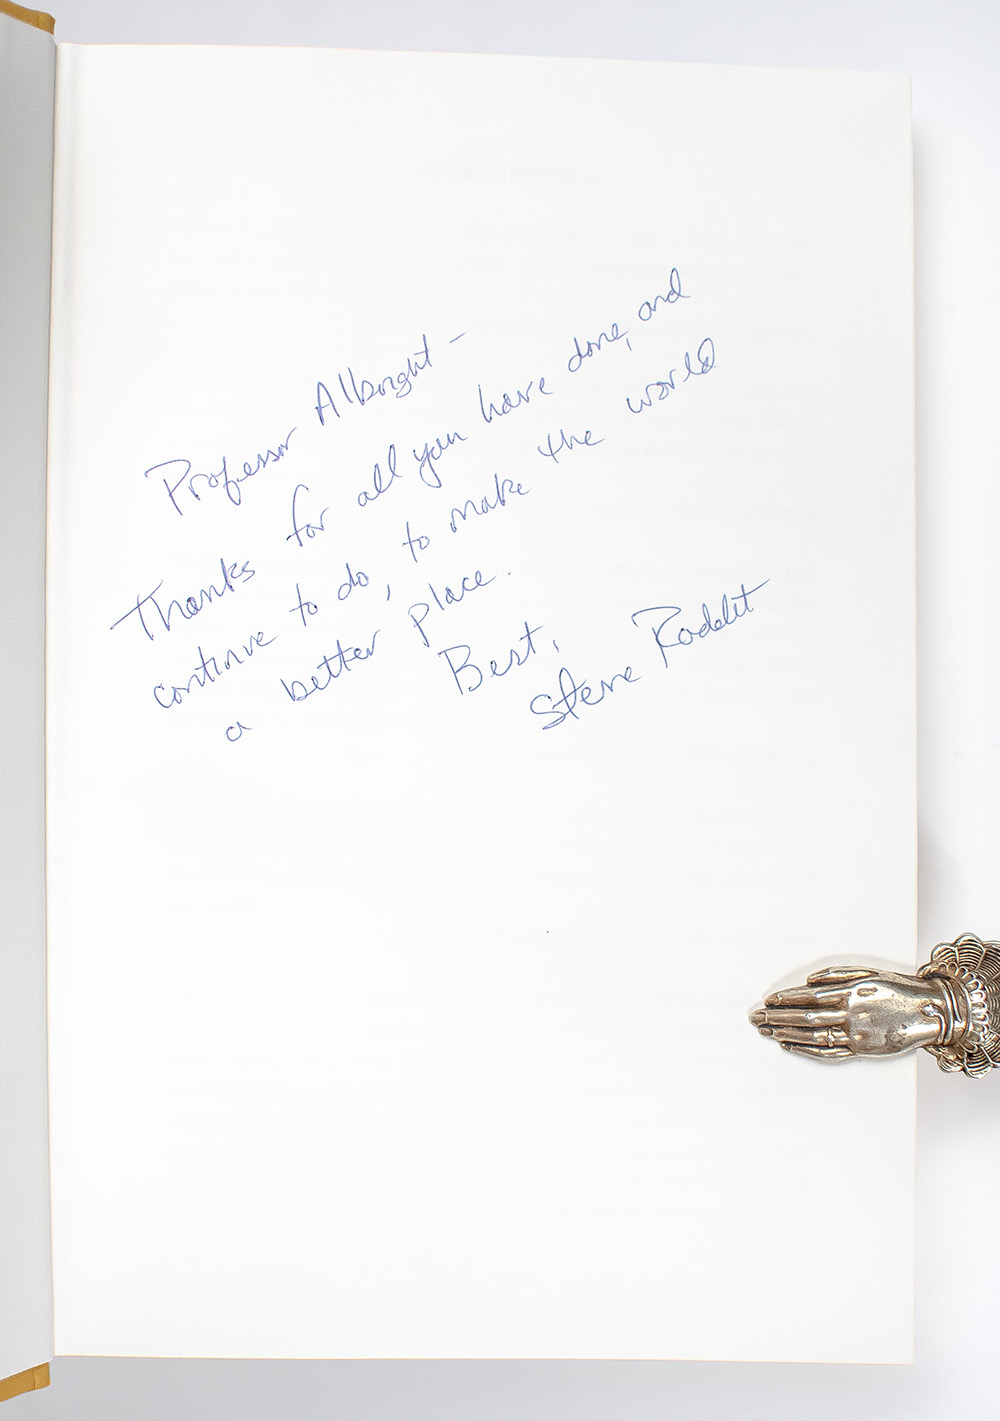 Professor Albright –
Thanks for all you have done, and
continue to do, to make the world
a better place.
Best,
Steve Radelet